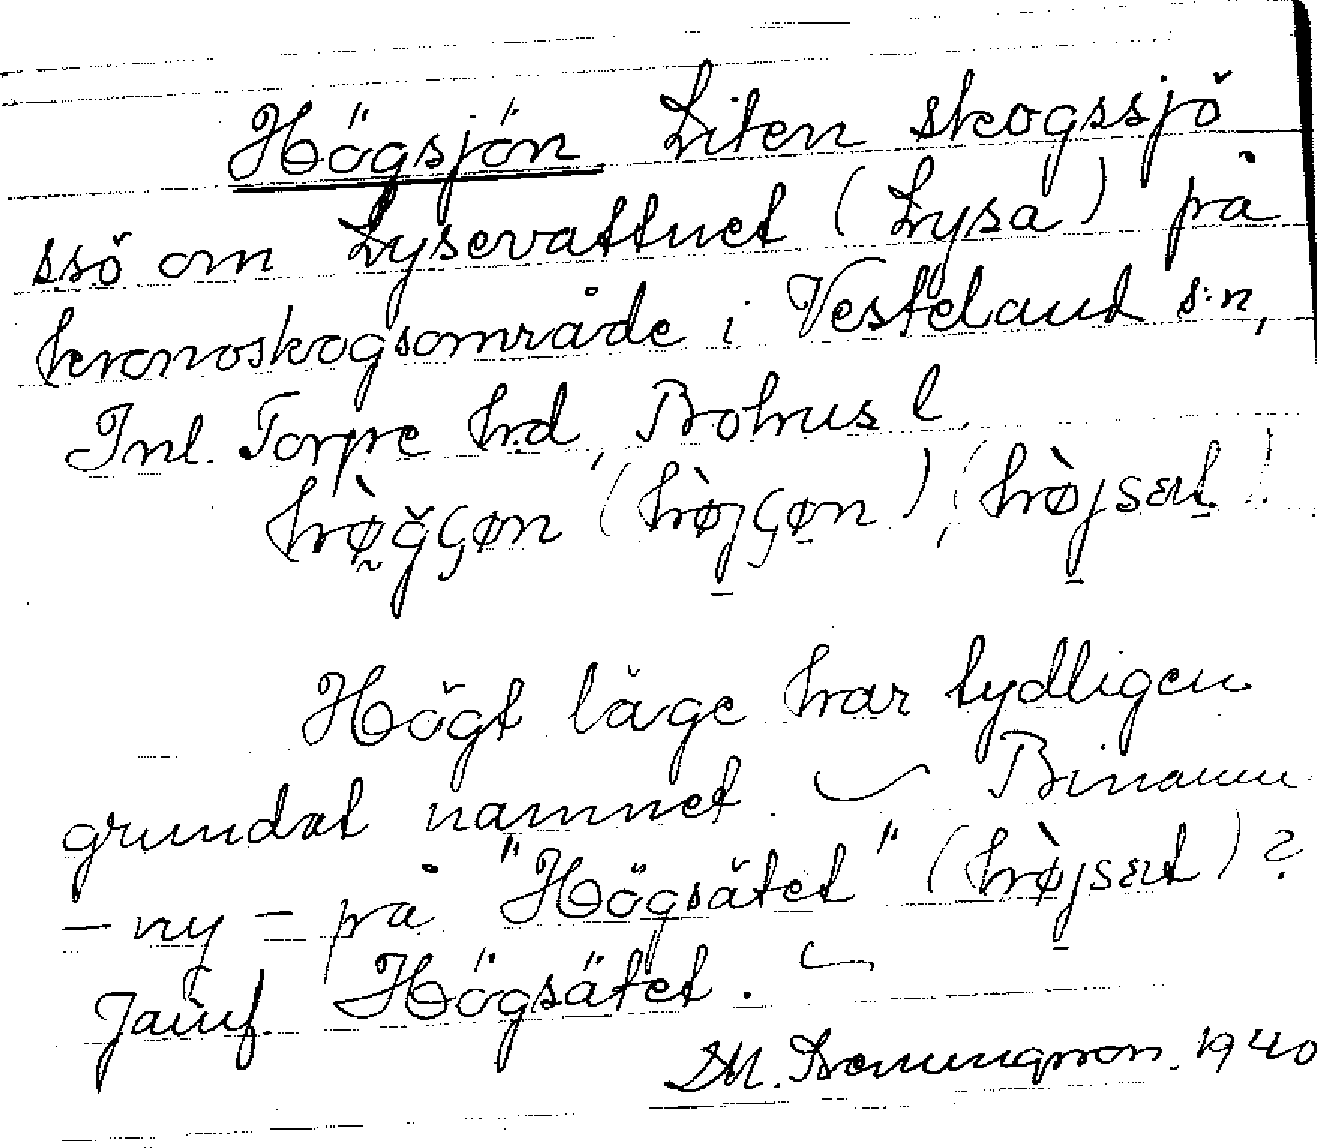 Högsjön Liten skogssjö
ssö om Lysevattnet (Lysa) på
kronoskogsområde i Vesteland s:n,
Inl. Torpe hrd, Bohus l.
Högt läge har tydligen
grundat namnet. Binamn
- ny - på "Högsätet" (hø̀jsæt)?
Jämf. Högsätet.
1940